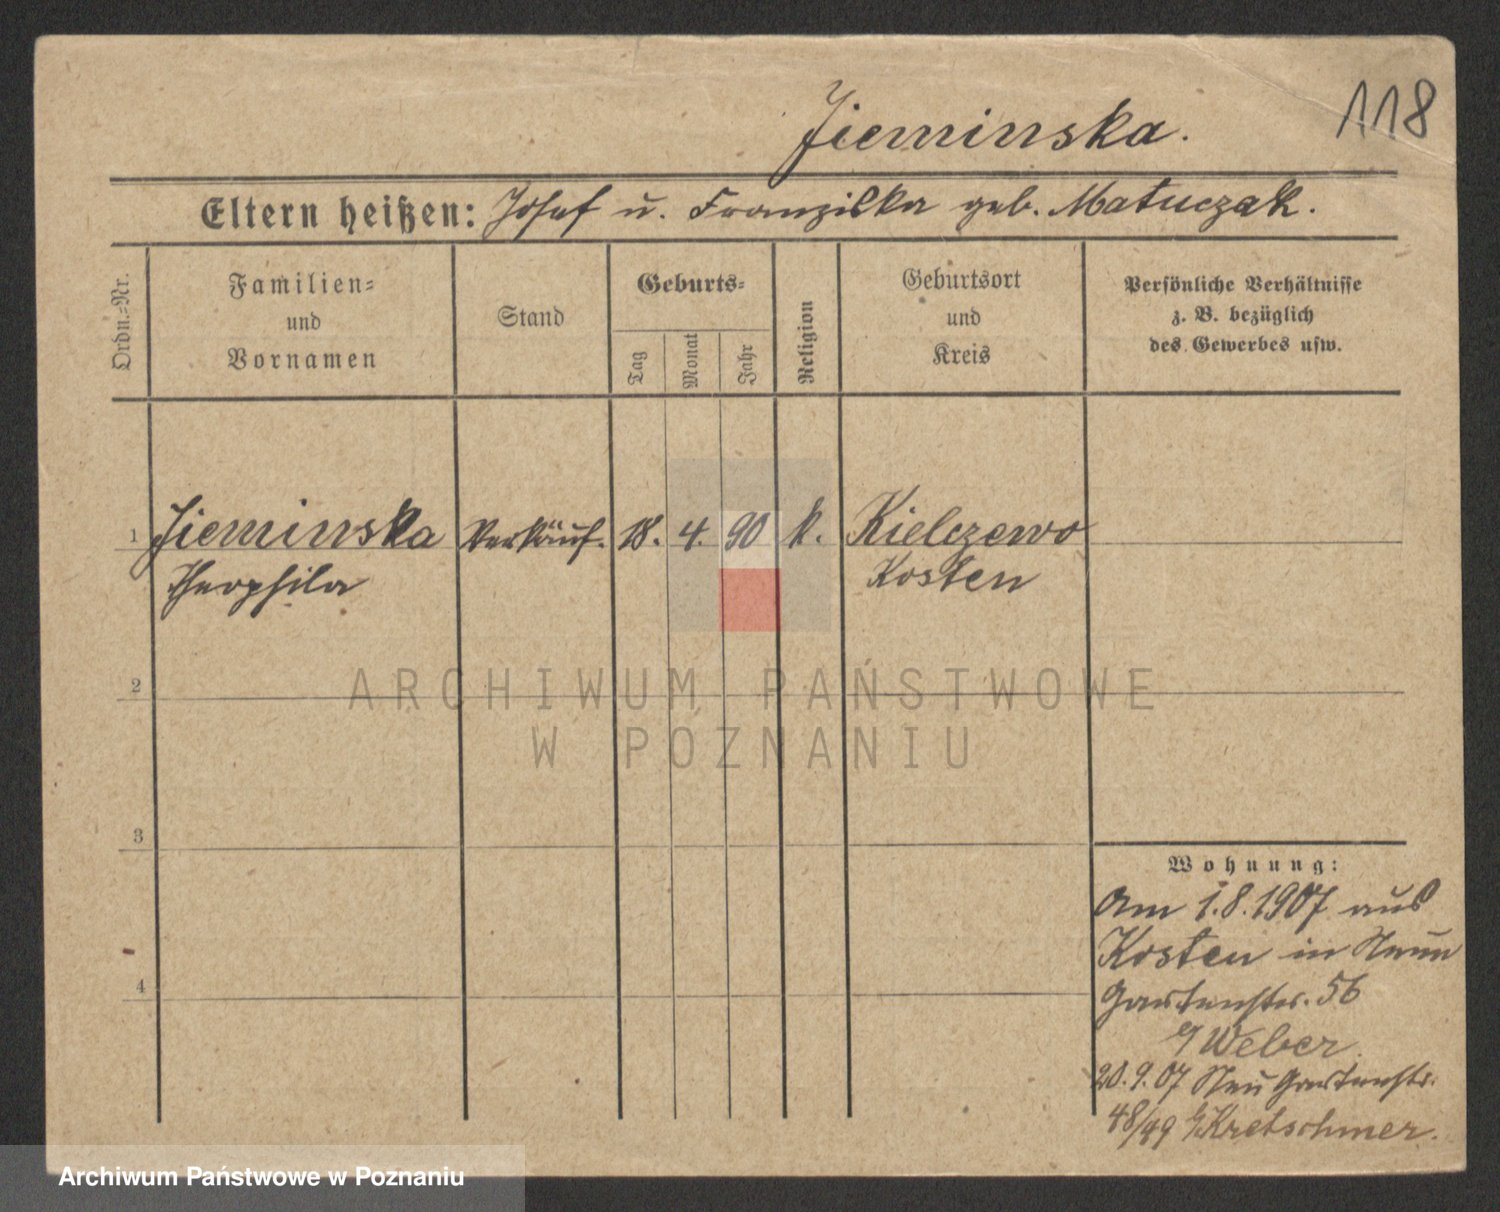 Zieminska.
118
Eltern heißen: Josef u. Franziska geb. Matuczak.
Ordn.-Nr.
Familien-
und
Vornamen
Stand
Geburts-
Tag
Monat
Jahr
Religion
Geburtsort
und
Kreis
Persönliche Verhältnisse
z. B. bezüglich
des Gewerbes usw.
1 Zieminska Verkäuf. 18. 4. 90 k. Kielczewo
Theophila Kosten
2
ARCHIWUM PAŃSTWOWE
W POZNANIU
3
Wohnung:
Am 1.8.1907 aus
Kosten in
4
Gartenstr. 56
Weber
20.9.07 Neu Gartenstr.
48/49 Kretschmer.
Archiwum Państwowe w Poznaniu